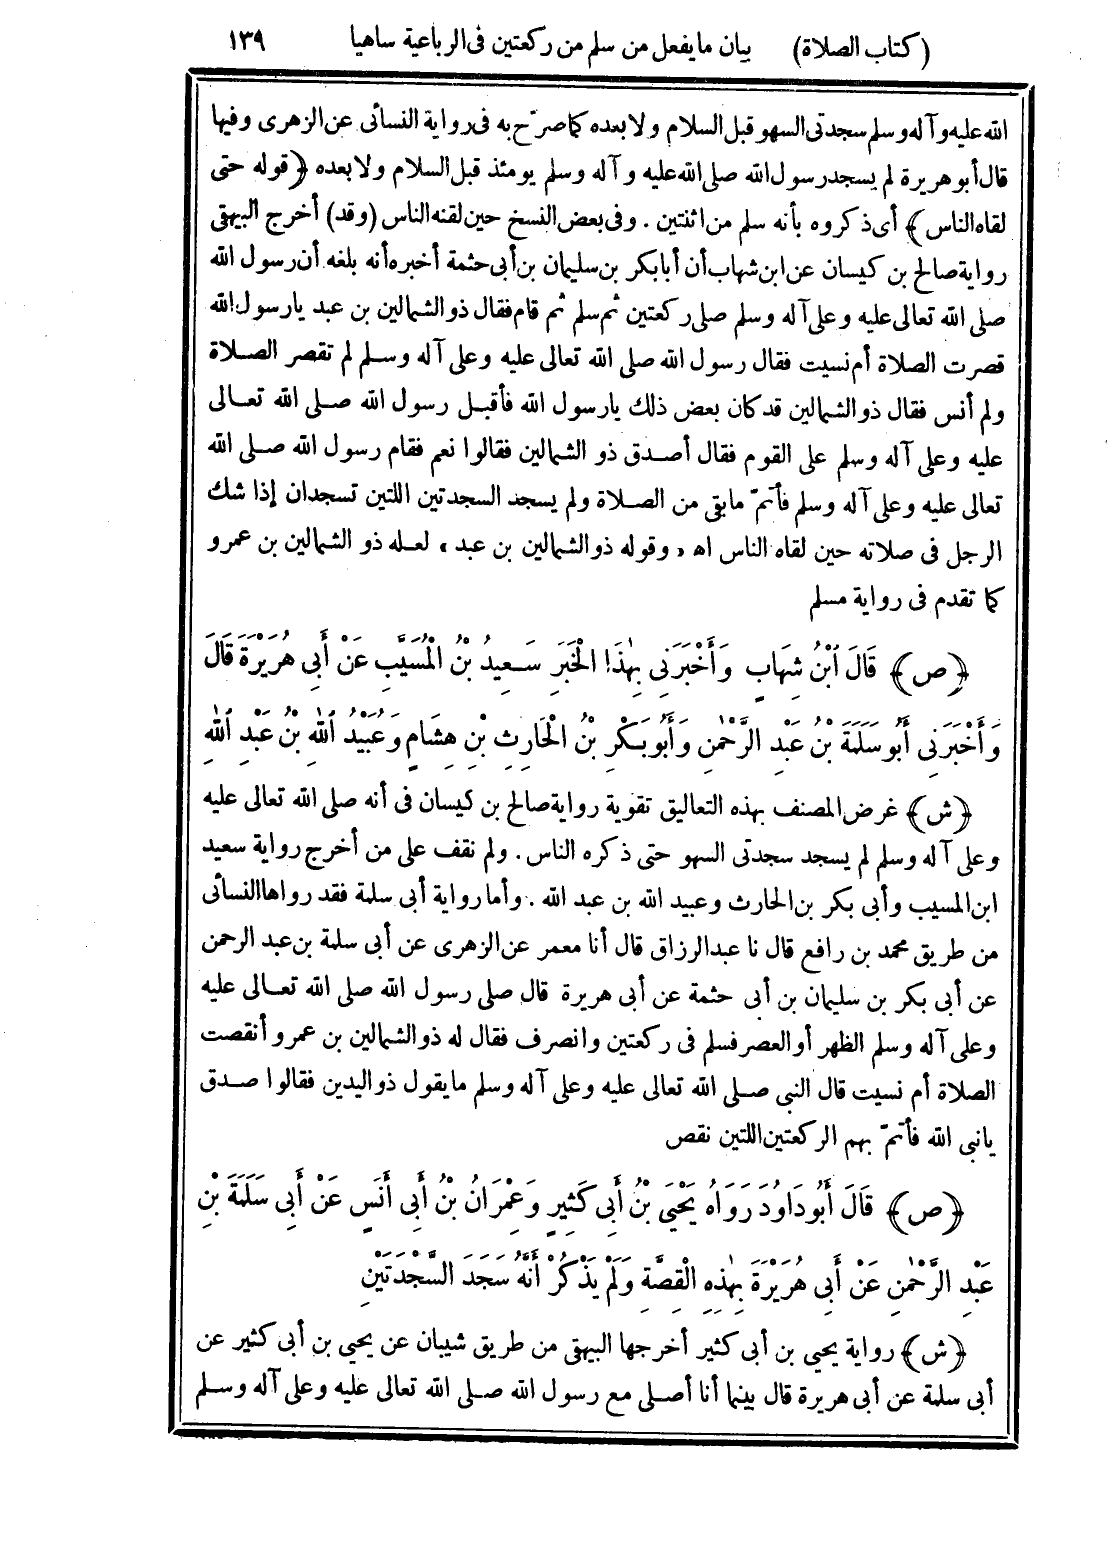 (كتاب الصلاة) بيان ما يفعل من سلم من ركعتين فى الرباعية ساهيا ١٣٩
الله عليه وآله وسلم سجدتى السهو قبل السلام ولا بعده كما صرّح به فى رواية النسائى عن الزهرى وفيها
قال أبو هريرة لم يسجد رسول الله صلى الله عليه وآله وسلم يومئذ قبل السلام ولا بعده ﴿قوله حتى
لقاه الناس﴾ أى ذكروه بأنه سلم من اثنتين . وفى بعض النسخ حين لقنه الناس (وقد) أخرج البيهقى
رواية صالح بن كيسان عن ابن شهاب أن أبا بكر بن سليمان بن أبى حثمة أخبره أنه بلغه أن رسول الله
صلى الله تعالى عليه وعلى آله وسلم صلى ركعتين ثم سلم ثم قام فقال ذو الشمالين بن عبد يا رسول الله
قصرت الصلاة أم نسيت فقال رسول الله صلى الله تعالى عليه وعلى آله وسلم لم تقصر الصلاة
ولم أنس فقال ذو الشمالين قد كان بعض ذلك يا رسول الله فأقبل رسول الله صلى الله تعالى
عليه وعلى آله وسلم على القوم فقال أصدق ذو الشمالين فقالوا نعم فقام رسول الله صلى الله
تعالى عليه وعلى آله وسلم فأتمّ ما بقى من الصلاة ولم يسجد السجدتين اللتين تسجدان إذا شك
الرجل فى صلاته حين لقاه الناس اه «وقوله ذو الشمالين بن عبد» لعله ذو الشمالين بن عمرو
كما تقدم فى رواية مسلم
﴿ص﴾ قَالَ ابْنُ شِهَابٍ وَأَخْبَرَنِى بِهٰذَا الْخَبَرِ سَعِيدُ بْنُ الْمُسَيَّبِ عَنْ أَبِى هُرَيْرَةَ قَالَ
وَأَخْبَرَنِى أَبُو سَلَمَةَ بْنُ عَبْدِ الرَّحْمٰنِ وَأَبُو بَكْرِ بْنُ الْحَارِثِ بْنِ هِشَامٍ وَعُبَيْدُ اللهِ بْنُ عَبْدِ اللهِ
﴿ش﴾ غرض المصنف بهذه التعاليق تقوية رواية صالح بن كيسان فى أنه صلى الله تعالى عليه
وعلى آله وسلم لم يسجد سجدتى السهو حتى ذكره الناس . ولم نقف على من أخرج رواية سعيد
ابن المسيب وأبى بكر بن الحارث وعبيد الله بن عبد الله . وأما رواية أبى سلمة فقد رواها النسائى
من طريق محمد بن رافع قال نا عبد الرزاق قال أنا معمر عن الزهرى عن أبى سلمة بن عبد الرحمن
عن أبى بكر بن سليمان بن أبى حثمة عن أبى هريرة قال صلى رسول الله صلى الله تعالى عليه
وعلى آله وسلم الظهر أو العصر فسلم فى ركعتين وانصرف فقال له ذو الشمالين بن عمرو أنقصت
الصلاة أم نسيت قال النبى صلى الله تعالى عليه وعلى آله وسلم ما يقول ذو اليدين فقالوا صدق
يا نبى الله فأتمّ بهم الركعتين اللتين نقص
﴿ص﴾ قَالَ أَبُو دَاوُدَ رَوَاهُ يَحْيَى بْنُ أَبِى كَثِيرٍ وَعِمْرَانُ بْنُ أَبِى أَنَسٍ عَنْ أَبِى سَلَمَةَ بْنِ
عَبْدِ الرَّحْمٰنِ عَنْ أَبِى هُرَيْرَةَ بِهٰذِهِ الْقِصَّةِ وَلَمْ يَذْكُرْ أَنَّهُ سَجَدَ السَّجْدَتَيْنِ
﴿ش﴾ رواية يحيى بن أبى كثير أخرجها البيهقى من طريق شيبان عن يحيى بن أبى كثير عن
أبى سلمة عن أبى هريرة قال بينما أنا أصلى مع رسول الله صلى الله تعالى عليه وعلى آله وسلم